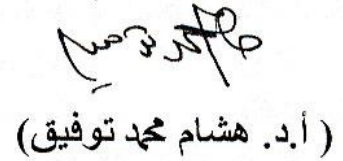 ( أ.د. هشام محمد توفيق)